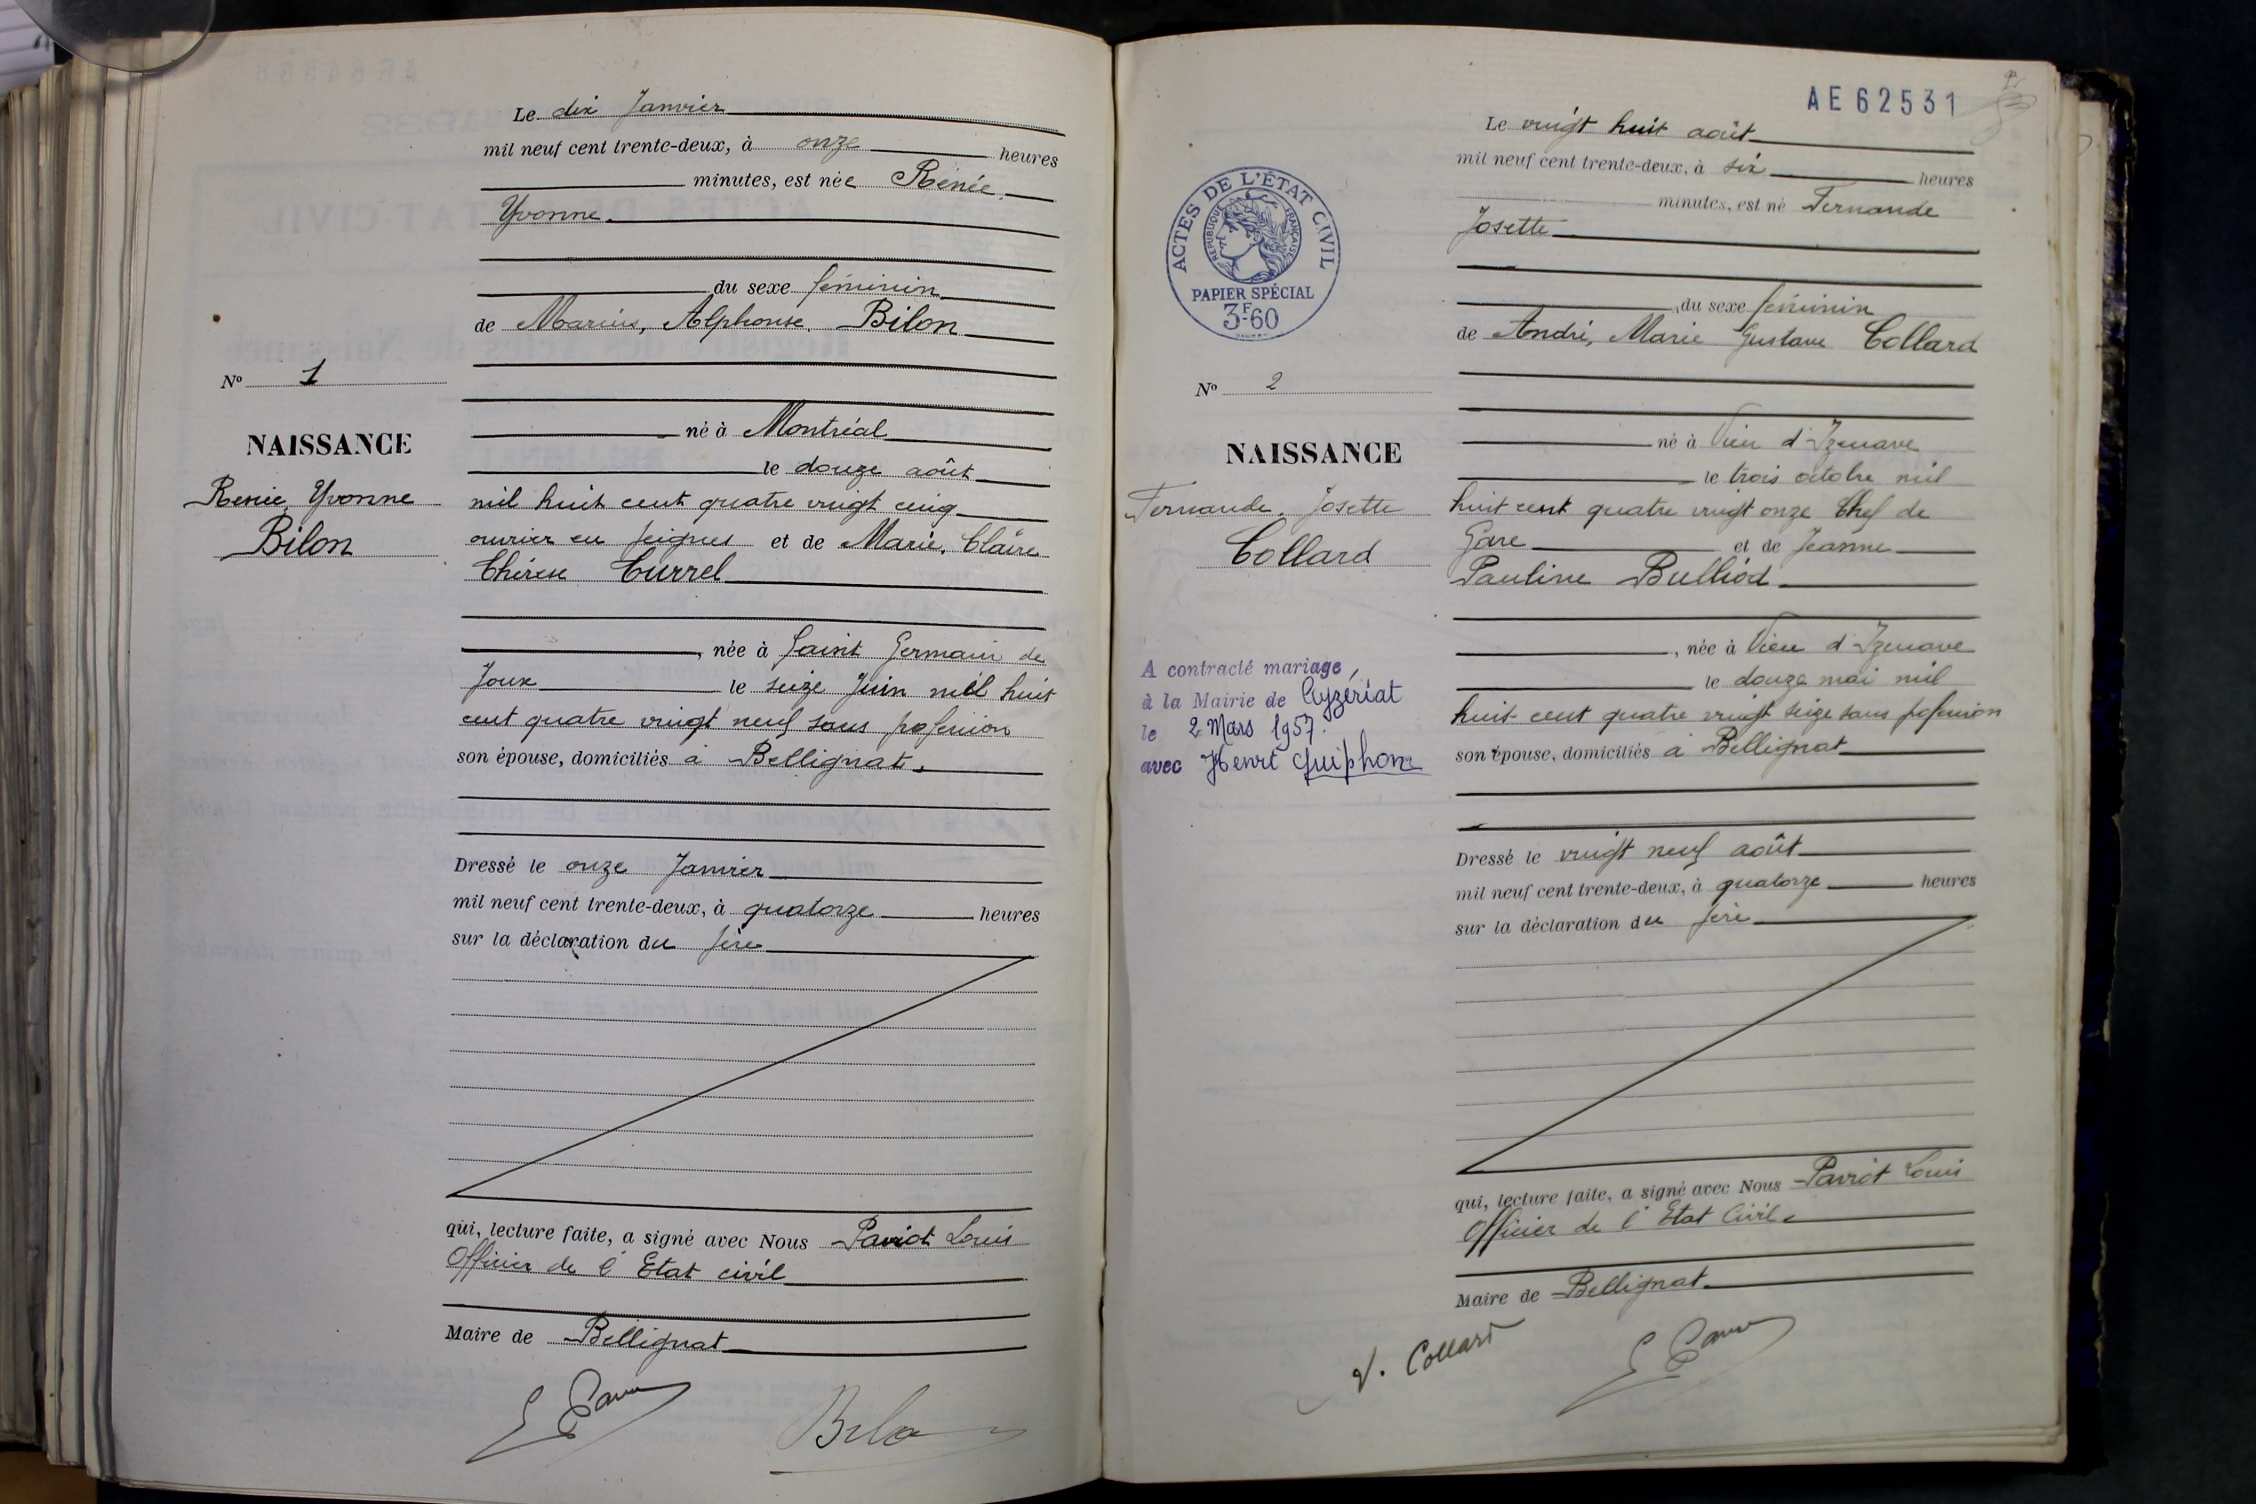 Le dix Janvier
mil neuf cent trente-deux, à onze heures
minutes, est née Renée,
Yvonne
du sexe féminin
de Marius, Alphonse, Bilon
Nº 1
né à Montréal
NAISSANCE
le douze août
Renée, Yvonne
mil huit cent quatre vingt cinq
Bilon
ouvrier en peignes et de Marie, Claire
Thérèse Currel
, née à Saint Germain de
Joux le seize Juin mil huit
cent quatre vingt neuf sans profession
son épouse, domiciliés à Bellignat.
Dressé le onze Janvier
mil neuf cent trente-deux, à quatorze heures
sur la déclaration du père
qui, lecture faite, a signé avec Nous Paviot Louis
Officier de l'Etat civil
Maire de Bellignat
AE62531
2
Le vingt huit août
mil neuf cent trente-deux, à six heures
minutes, est né Fernande
Josette
ACTES DE L'ÉTAT CIVIL
RÉPUBLIQUE FRANÇAISE
PAPIER SPÉCIAL
3F60
, du sexe féminin
de André, Marie Gustave Collard
Nº 2
né à Vieu d'Izenave
NAISSANCE
le trois octobre mil
Fernande, Josette
huit cent quatre vingt onze Chef de
Collard
Gare et de Jeanne
Pauline Bulliod
, née à Vieu d'Izenave
le douze mai mil
huit cent quatre vingt seize sans profession
son épouse, domiciliés à Bellignat
A contracté mariage,
à la Mairie de Ceyzériat
le 2 Mars 1957.
avec Henri Guiphon
Dressé le vingt neuf août
mil neuf cent trente-deux, à quatorze heures
sur la déclaration du père
qui, lecture faite, a signé avec Nous Paviot Louis
Officier de l'Etat Civil
Maire de Bellignat
Collard